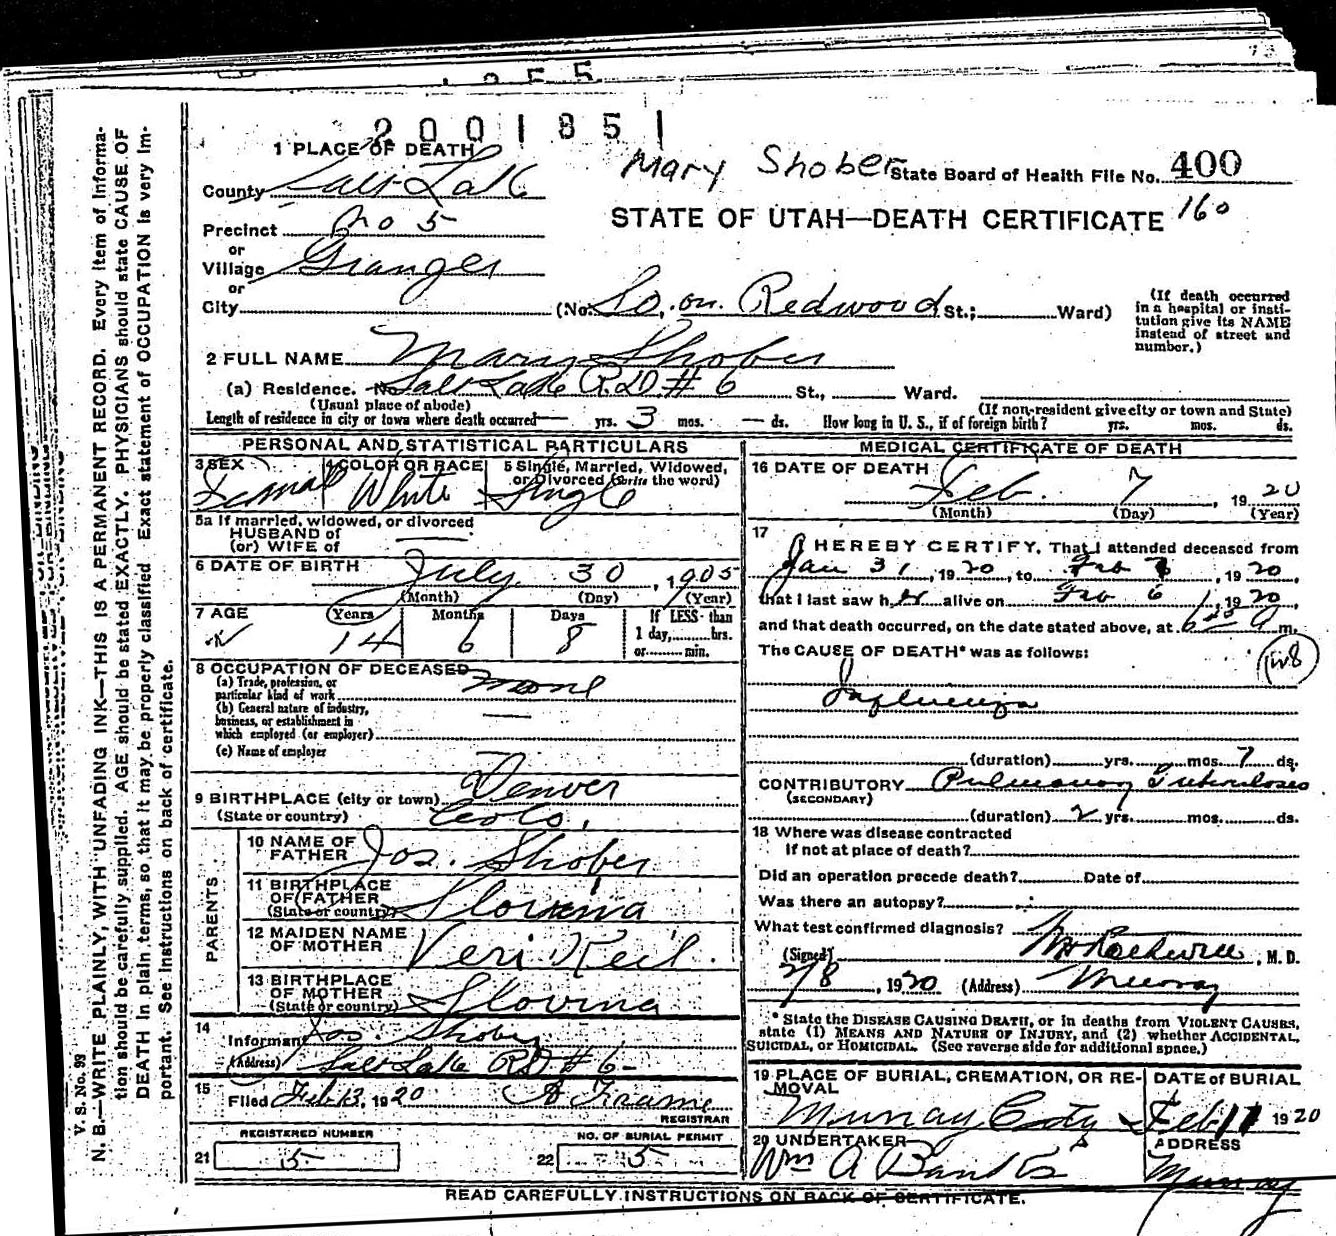 200185
1 PLACE OF DEATH
Mary Shober
State Board of Health File No. 400
County Salt Lake
STATE OF UTAH—DEATH CERTIFICATE 160
Precinct No 5
or
Village Granger
or
City
(No. So. on Redwood St.; Ward)
(If death occurred
in a hospital or insti-
tution give its NAME
instead of street and
number.)
2 FULL NAME Mary Shober
(a) Residence. No. Salt Lake R.D. # 6 St., Ward.
(Usual place of abode)
(If non-resident give city or town and State)
Length of residence in city or town where death occurred — yrs. 3 mos. — ds. How long in U. S., if of foreign birth? yrs. mos. ds.
PERSONAL AND STATISTICAL PARTICULARS
3 SEX
Female
4 COLOR OR RACE
White
5 Single, Married, Widowed,
or Divorced (write the word)
Single
5a If married, widowed, or divorced
HUSBAND of
(or) WIFE of
6 DATE OF BIRTH July 30, 1905
(Month) (Day) (Year)
7 AGE Years Months Days If LESS than
14 6 8 1 day, hrs.
or min.
8 OCCUPATION OF DECEASED
(a) Trade, profession, or
particular kind of work None
(b) General nature of industry,
business, or establishment in
which employed (or employer)
(c) Name of employer
9 BIRTHPLACE (city or town) Denver
(State or country) Colo.
PARENTS
10 NAME OF
FATHER Jos. Shober
11 BIRTHPLACE
OF FATHER
(State or country) Slovinia
12 MAIDEN NAME
OF MOTHER Veri Keil.
13 BIRTHPLACE
OF MOTHER
(State or country) Slovina
14
Informant Jos. Shober
(Address) Salt Lake RD # 6
15
Filed Feb 13, 1920 A Frame
REGISTRAR
REGISTERED NUMBER
21 5
NO. OF BURIAL PERMIT
22 5
MEDICAL CERTIFICATE OF DEATH
16 DATE OF DEATH
Feb. 7, 1920
(Month) (Day) (Year)
17
I HEREBY CERTIFY, That I attended deceased from
Jan 31, 1920, to Feb 7, 1920,
that I last saw her alive on Feb 6, 1920,
and that death occurred, on the date stated above, at 6 A m.
The CAUSE OF DEATH* was as follows:
Influenza
(duration) yrs. mos. 7 ds.
CONTRIBUTORY Pulmonary Tuberculoses
(SECONDARY)
(duration) 2 yrs. mos. ds.
18 Where was disease contracted
if not at place of death?
Did an operation precede death? Date of
Was there an autopsy?
What test confirmed diagnosis?
(Signed) Rothwell, M. D.
2/8, 1920 (Address) Murray
* State the DISEASE CAUSING DEATH, or in deaths from VIOLENT CAUSES,
state (1) MEANS AND NATURE OF INJURY, and (2) whether ACCIDENTAL,
SUICIDAL, or HOMICIDAL. (See reverse side for additional space.)
19 PLACE OF BURIAL, CREMATION, OR RE-
MOVAL
Murray City
DATE of BURIAL
Feb 11 1920
20 UNDERTAKER
Wm A Banks
ADDRESS
Murray
READ CAREFULLY INSTRUCTIONS ON BACK OF CERTIFICATE.
V. S. No. 99
N. B.—WRITE PLAINLY, WITH UNFADING INK—THIS IS A PERMANENT RECORD. Every item of informa-
tion should be carefully supplied. AGE should be stated EXACTLY. PHYSICIANS should state CAUSE OF
DEATH in plain terms, so that it may be properly classified. Exact statement of OCCUPATION is very im-
portant. See instructions on back of certificate.